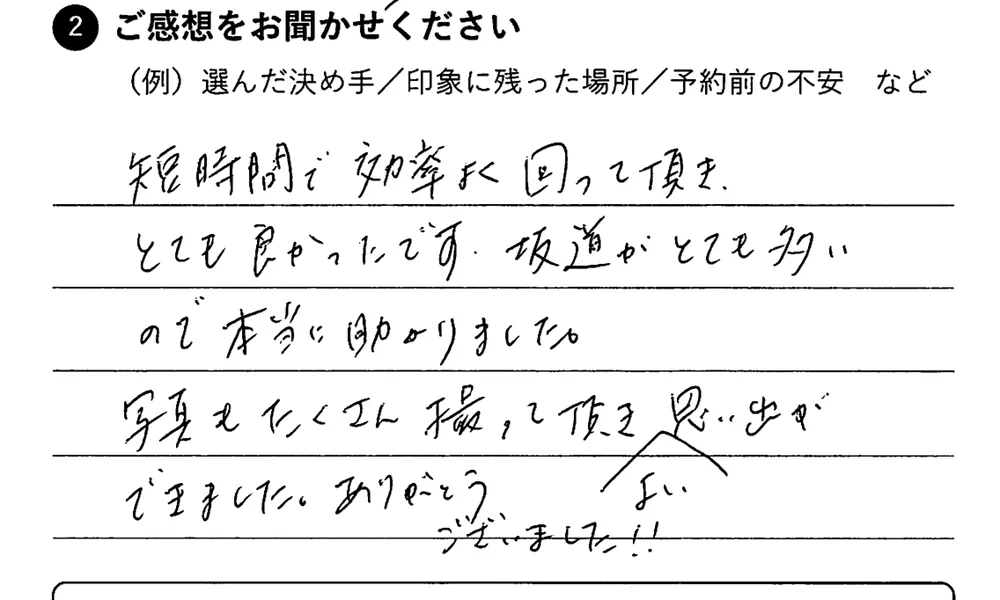 2 ご感想をお聞かせください
（例）選んだ決め手／印象に残った場所／予約前の不安　など
短時間で効率よく回って頂き、
とても良かったです。坂道がとても多い
ので本当に助かりました。
写真もたくさん撮って頂き思い出が
よい
できました。ありがとう
ございました!!